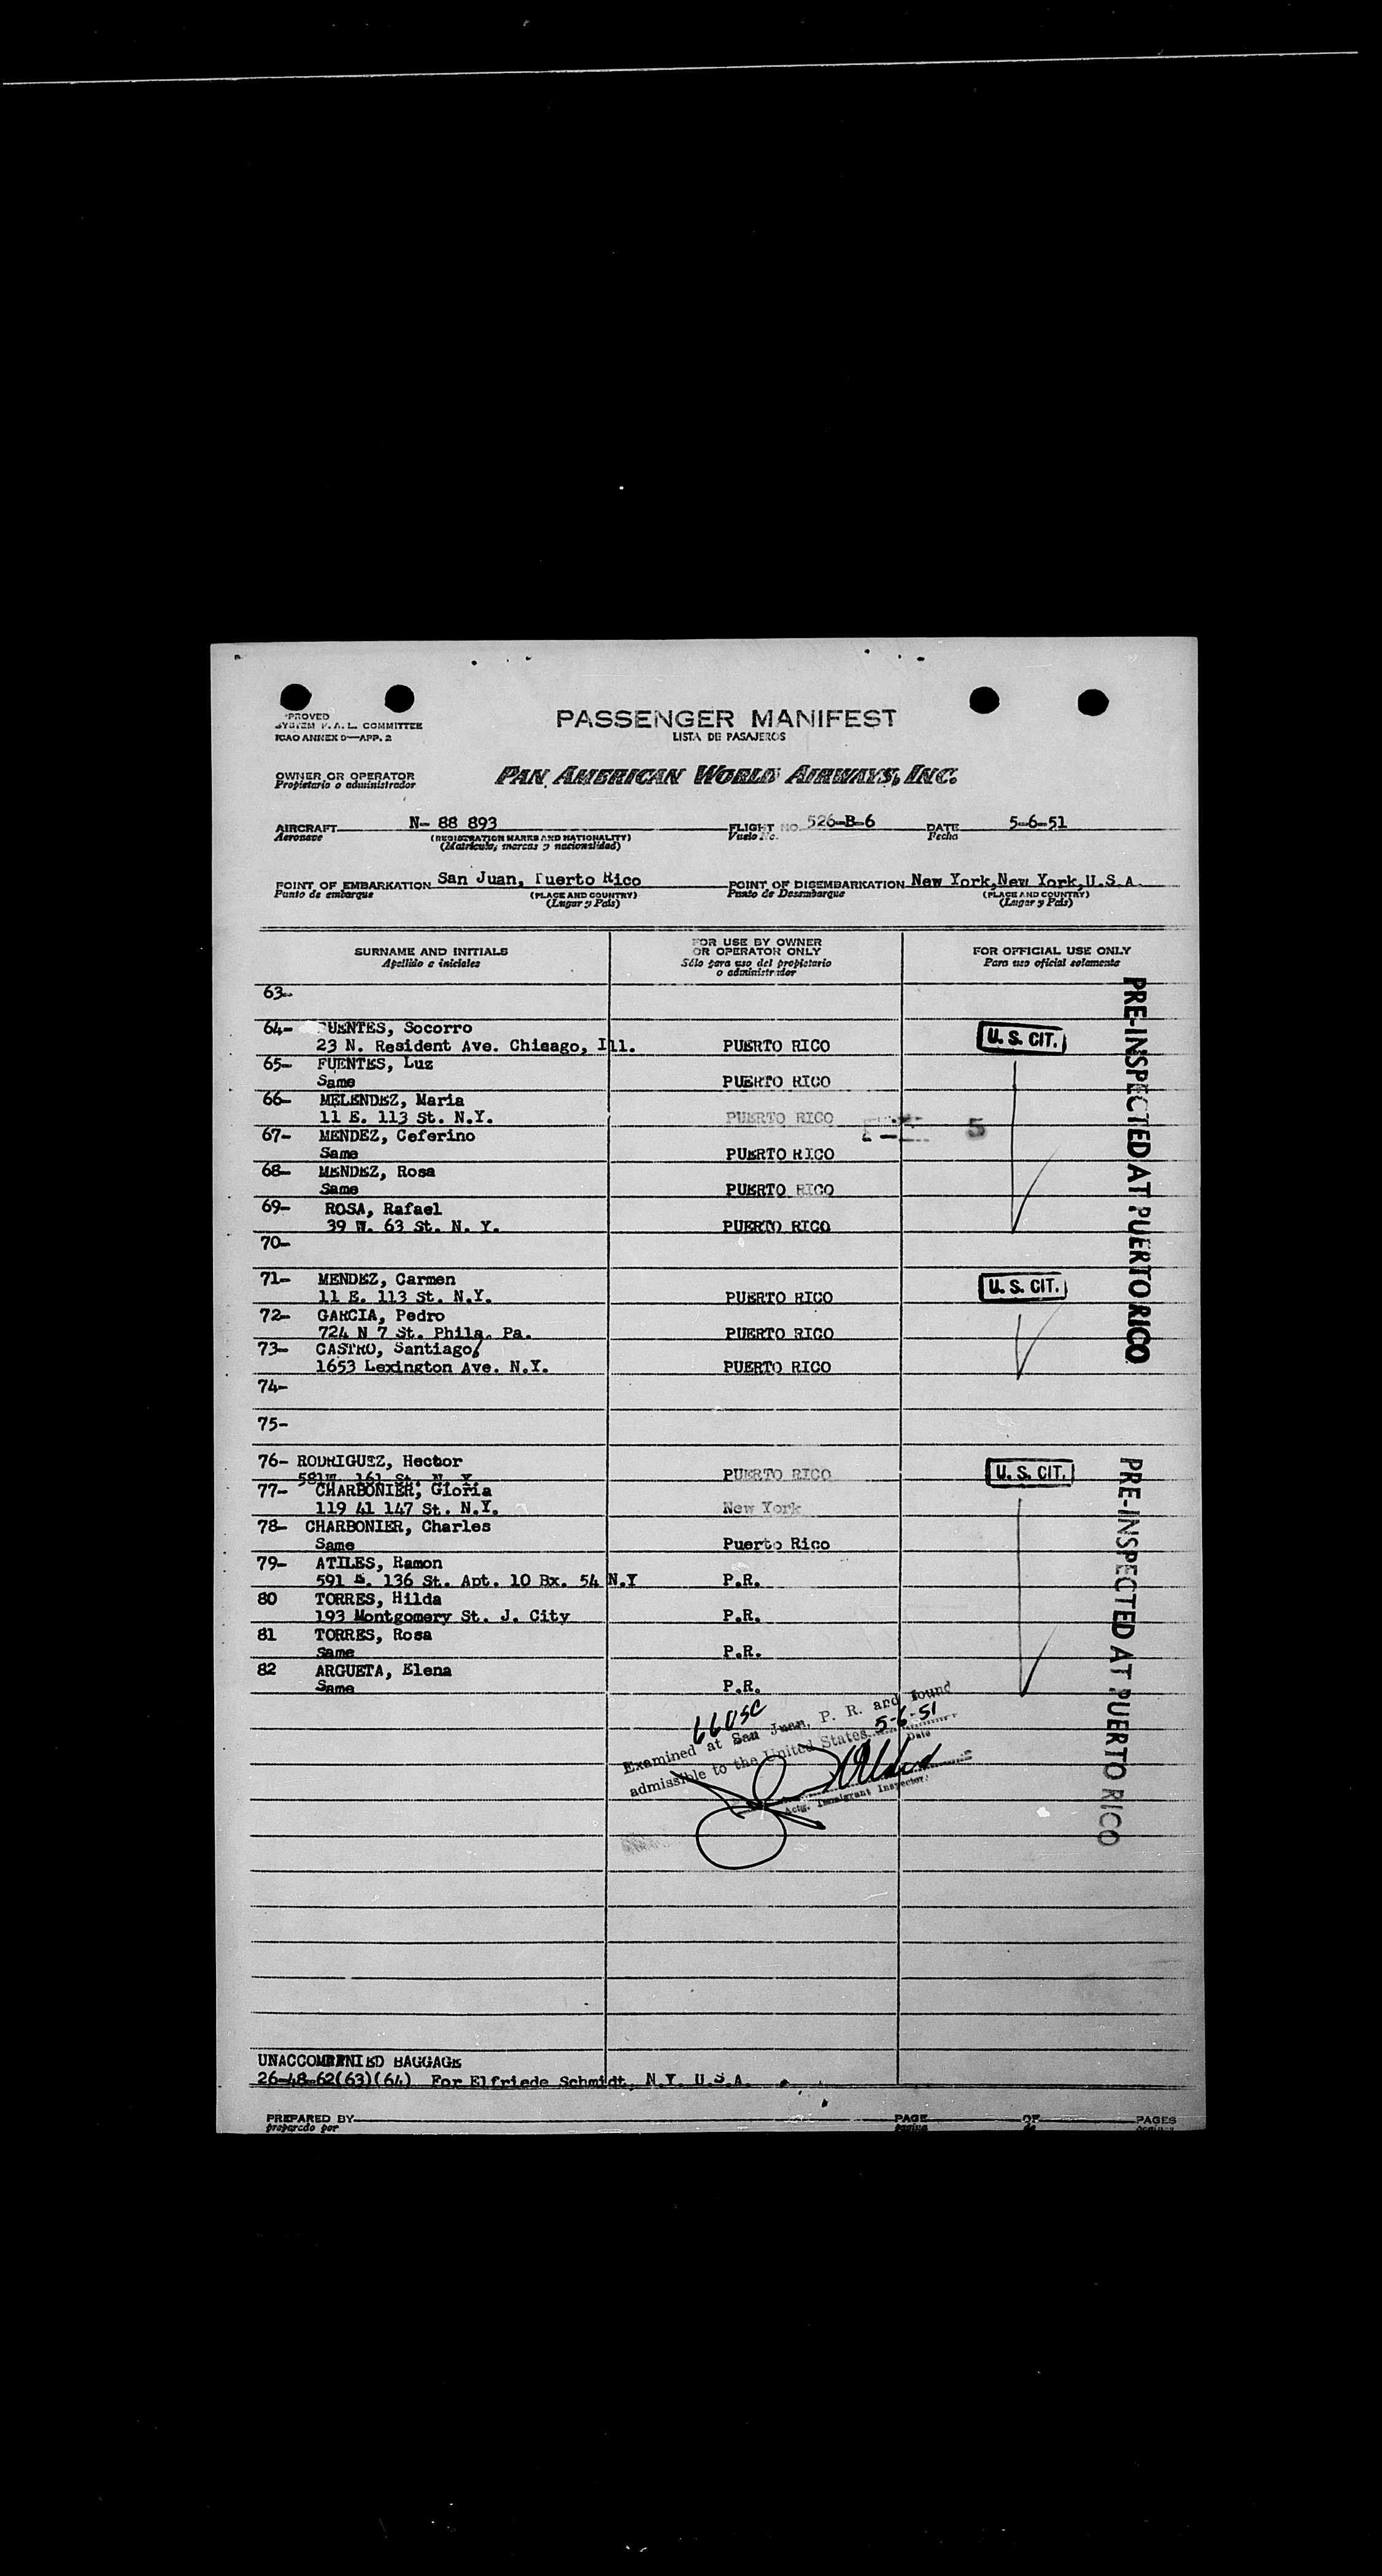 PROVED
SYSTEM F. A. L. COMMITTEE
ICAO ANNEX 9—APP. 2
PASSENGER MANIFEST
LISTA DE PASAJEROS
OWNER OR OPERATOR
Propietario o administrador
PAN AMERICAN WORLD AIRWAYS, INC.
AIRCRAFT N- 88 893 FLIGHT NO. 526-B-6 DATE 5-6-51
Aeronave (REGISTRATION MARKS AND NATIONALITY) Vuelo No. Fecha
(Matricula, marcas y nacionalidad)
POINT OF EMBARKATION San Juan, Puerto Rico POINT OF DISEMBARKATION New York,New York,U.S.A.
Punto de embarque (PLACE AND COUNTRY) Punto de Desembarque (PLACE AND COUNTRY)
(Lugar y País) (Lugar y País)
SURNAME AND INITIALS FOR USE BY OWNER OR OPERATOR ONLY FOR OFFICIAL USE ONLY
Apellido e iniciales Sólo para uso del propietario o administrador Para uso oficial solamente
63-
64- FUENTES, Socorro
23 N. Resident Ave. Chicago, Ill. PUERTO RICO U. S. CIT.
65- FUENTES, Luz
Same PUERTO RICO
66- MELENDEZ, Maria
11 E. 113 St. N.Y. PUERTO RICO
67- MENDEZ, Ceferino 5
Same PUERTO RICO
68- MENDEZ, Rosa
Same PUERTO RICO
69- ROSA, Rafael
39 W. 63 St. N. Y. PUERTO RICO
70-
71- MENDEZ, Carmen
11 E. 113 St. N.Y. PUERTO RICO U. S. CIT.
72- GARCIA, Pedro
724 N 7 St. Phila. Pa. PUERTO RICO
73- CASTRO, Santiago
1653 Lexington Ave. N.Y. PUERTO RICO
74-
75-
76- RODRIGUEZ, Hector
581W. 161 St. N. Y. PUERTO RICO U. S. CIT.
77- CHARBONIER, Gloria
119 41 147 St. N.Y. New York
78- CHARBONIER, Charles
Same Puerto Rico
79- ATILES, Ramon
591 E. 136 St. Apt. 10 Bx. 54 N.Y P.R.
80 TORRES, Hilda
193 Montgomery St. J. City P.R.
81 TORRES, Rosa
Same P.R.
82 ARGUETA, Elena
Same P.R.
PRE-INSPECTED AT PUERTO RICO
PRE-INSPECTED AT PUERTO RICO
66USC
Examined at San Juan, P. R. and found
admissible to the United States 5-6-51
Date
Actg. Immigrant Inspector
UNACCOMPANIED BAGGAGE
26-48-62(63)(64) For Elfriede Schmidt, N.Y. U.S.A.
PREPARED BY PAGE OF PAGES
preparado por pagina de